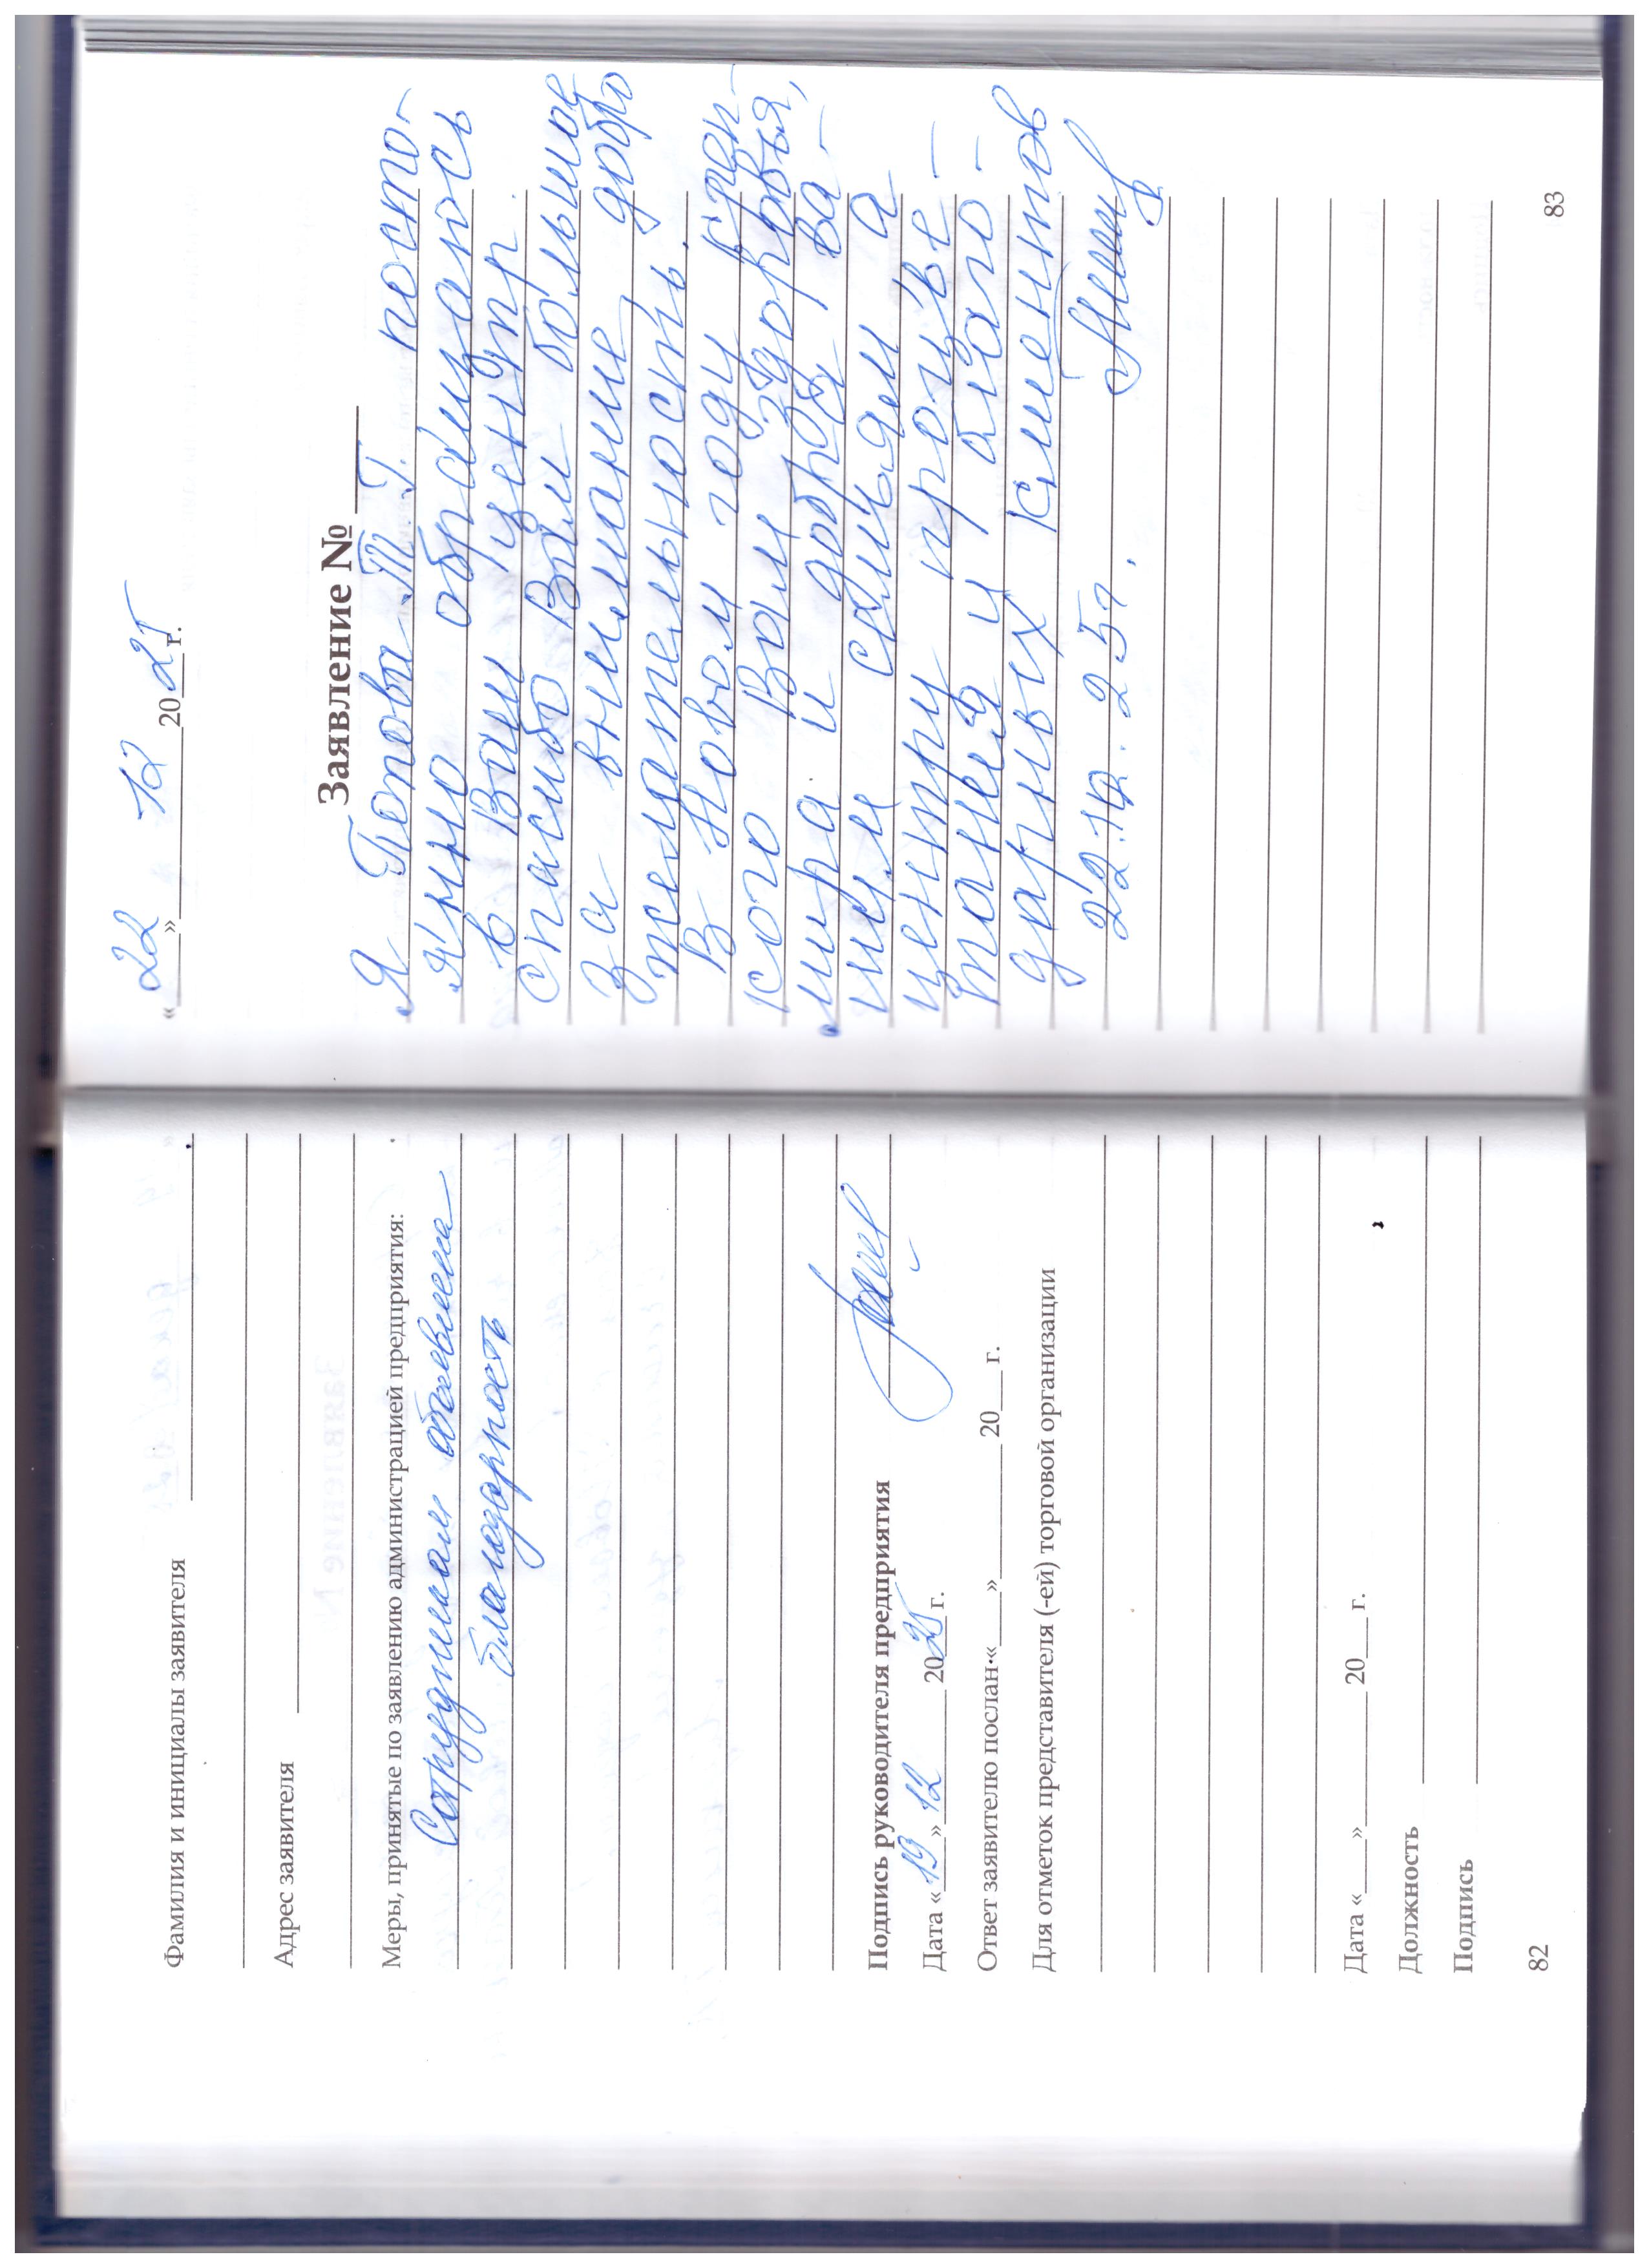 Фамилия и инициалы заявителя
Адрес заявителя
Меры, принятые по заявлению администрацией предприятия:
Сотрудникам объявлена
благодарность
Подпись руководителя предприятия
Дата «19» 12 2025 г.
Ответ заявителю послан «___»________ 20__ г.
Для отметок представителя (-ей) торговой организации
Дата «___»________ 20__ г.
Должность
Подпись
82
«22» 12 2025 г.
Заявление №
Я Т.Г. посто-
янно обращаюсь
в Ваш центр.
Спасибо Вам большое
за внимание добро
желательность.
В Новом году креп-
кого Вам здоровья,
мира и добра ва-
шим семьям а
центру процве-
тания и благо-
дарных клиентов
22.12.25г.
83